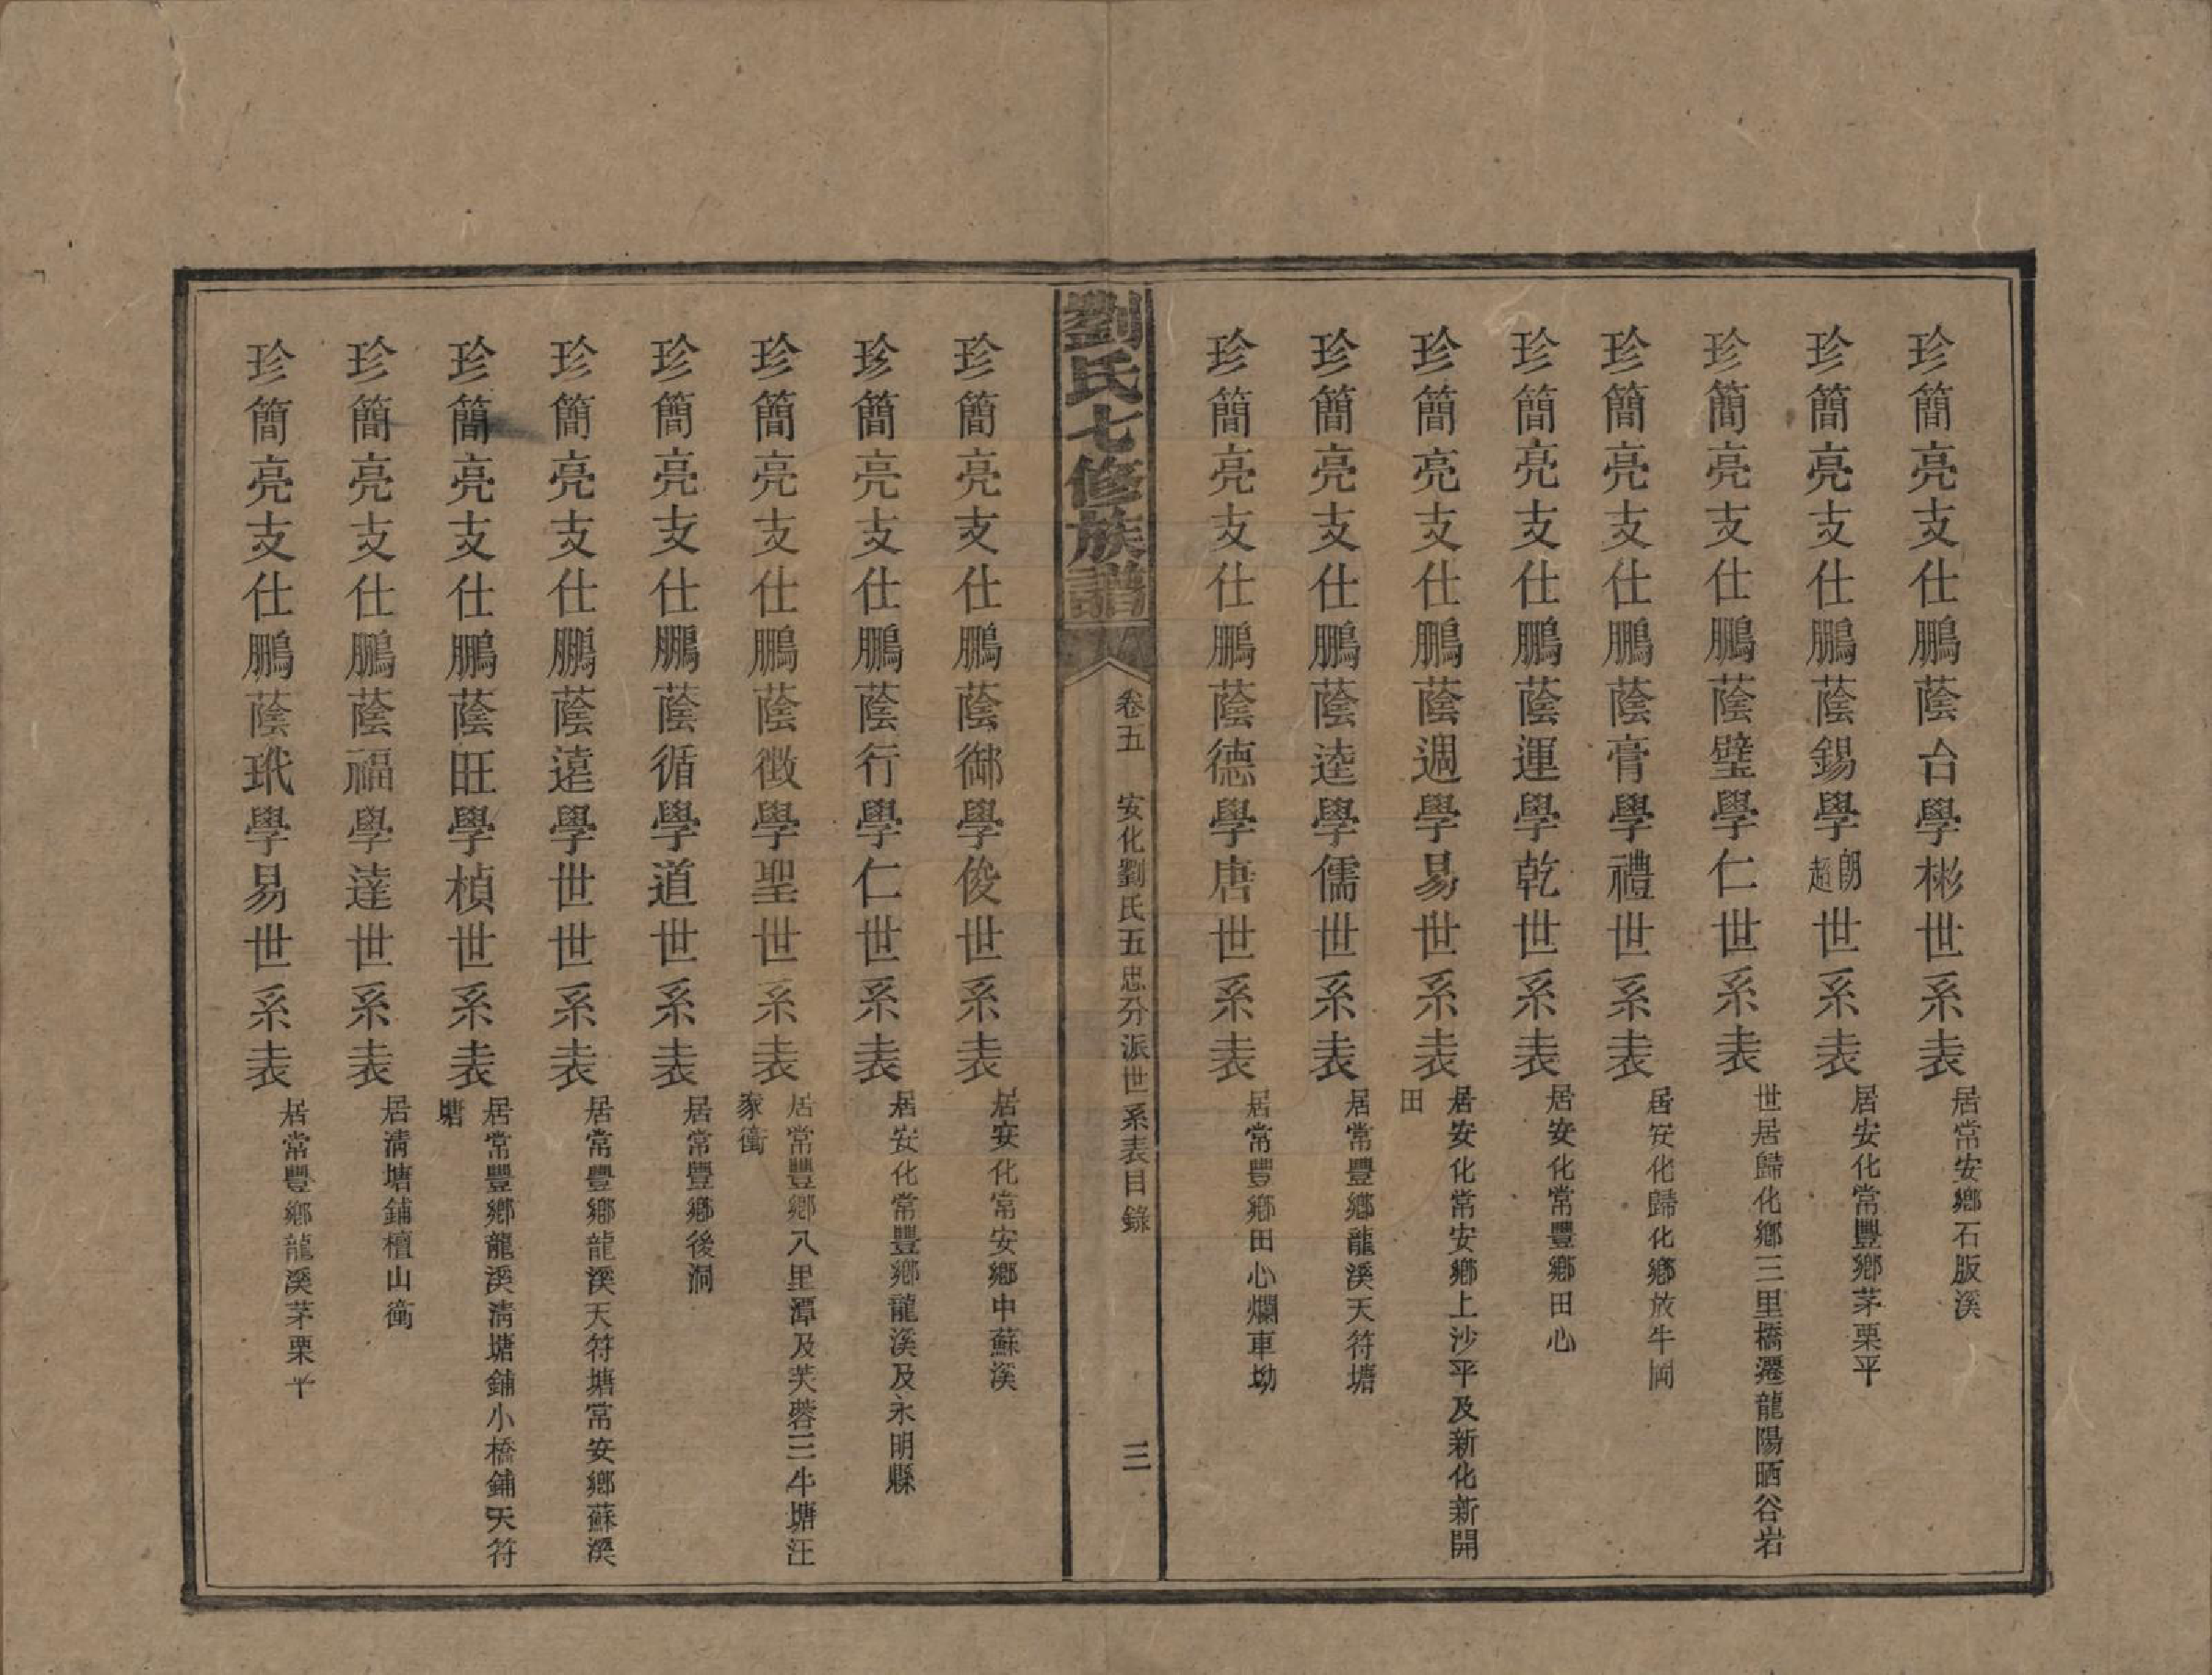 珍簡亮支仕鵬蔭台學彬世系表 居常安鄉石版溪
珍簡亮支仕鵬蔭錫學朗超世系表 居安化常豐鄉茅栗平
珍簡亮支仕鵬蔭璧學仁世系表 世居歸化鄉三里橋遷龍陽晒谷岩
珍簡亮支仕鵬蔭膏學禮世系表 居安化歸化鄉放牛岡
珍簡亮支仕鵬蔭運學乾世系表 居安化常豐鄉田心
珍簡亮支仕鵬蔭週學易世系表 居安化常安鄉上沙平及新化新開
田
珍簡亮支仕鵬蔭逵學儒世系表 居常豐鄉龍溪天符塘
珍簡亮支仕鵬蔭德學唐世系表 居常豐鄉田心爛車坳
劉氏七修族譜 卷五 安化劉氏五忠分派世系表目錄 三
珍簡亮支仕鵬蔭御學俊世系表 居安化常安鄉中蘇溪
珍簡亮支仕鵬蔭行學仁世系表 居安化常豐鄉龍溪及永明縣
珍簡亮支仕鵬蔭徴學聖世系表 居常豐鄉八里潭及芙蓉三牛塘汪
家衝
珍簡亮支仕鵬蔭循學道世系表 居常豐鄉後洞
珍簡亮支仕鵬蔭遠學世世系表 居常豐鄉龍溪天符塘常安鄉蘇溪
珍簡亮支仕鵬蔭旺學楨世系表 居常豐鄉龍溪清塘鋪小橋鋪天符
塘
珍簡亮支仕鵬蔭福學達世系表 居清塘鋪檀山衝
珍簡亮支仕鵬蔭玳學易世系表 居常豐鄉龍溪茅栗平